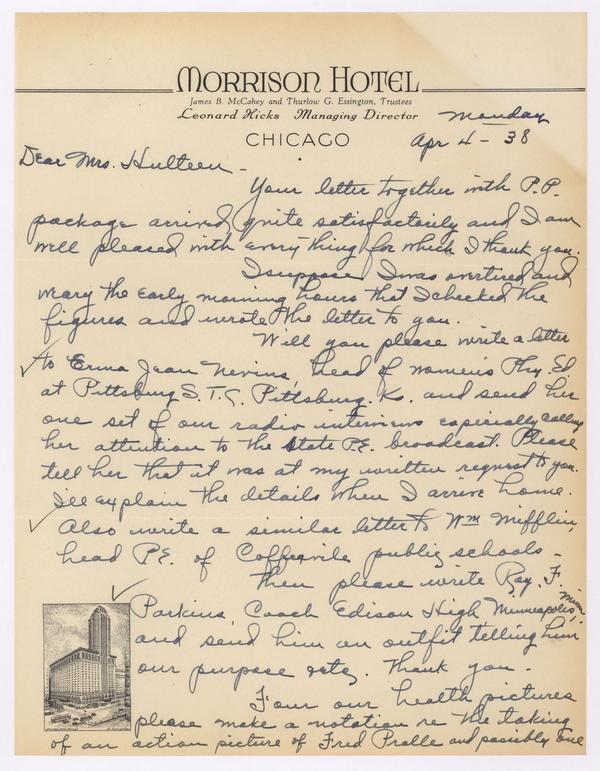 MORRISON HOTEL
James B. McCahey and Thurlow G. Essington, Trustees
Leonard Hicks Managing Director
CHICAGO
Monday
Apr 4 - 38
Dear Mrs. Hulteen -
Your letter together with P.P.
package arrived quite satisfactorily and I am
well pleased with everything for which I thank you.
I suppose I was overtired and
weary the early morning hours that I checked the
figures and wrote the letter to you.
Will you please write a letter
to Erma Jean Nevins, head of women's Phy. Ed
at Pittsburg S.T.C. Pittsburg. Ks. and send her
one set of our radio interviews especially calling
her attention to the State P.E. broadcast. Please
tell her that it was at my written request to you.
I'll explain the details when I arrive home.
Also write a similar letter to Wm Mifflin,
head P.E. of Coffeeville public schools -
Then please write Ray. F.
Parkins, Coach Edison High Minneapolis, Minn
and send him an outfit telling him
our purpose etc. Thank you.
our health pictures
please make a notation re the taking
of an action picture of Fred Pralle and possibly one